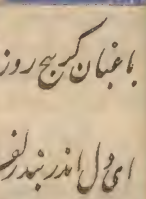 باغبان گر پنج روز
ای دل اندر بند زلف